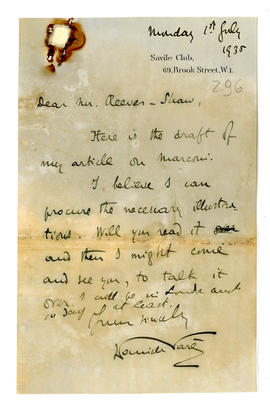 Monday 1st July
1935
Savile Club,
69, Brook Street, W.1.
296
Dear Mr. Reeves-Shaw,
Here is the draft of
my article on Marconi.
I believe I can
procure the necessary illustra-
tions. Will you read it
and then I might come
and see you, to talk it
over. I will be in London
10 days at least.
Yours sincerely